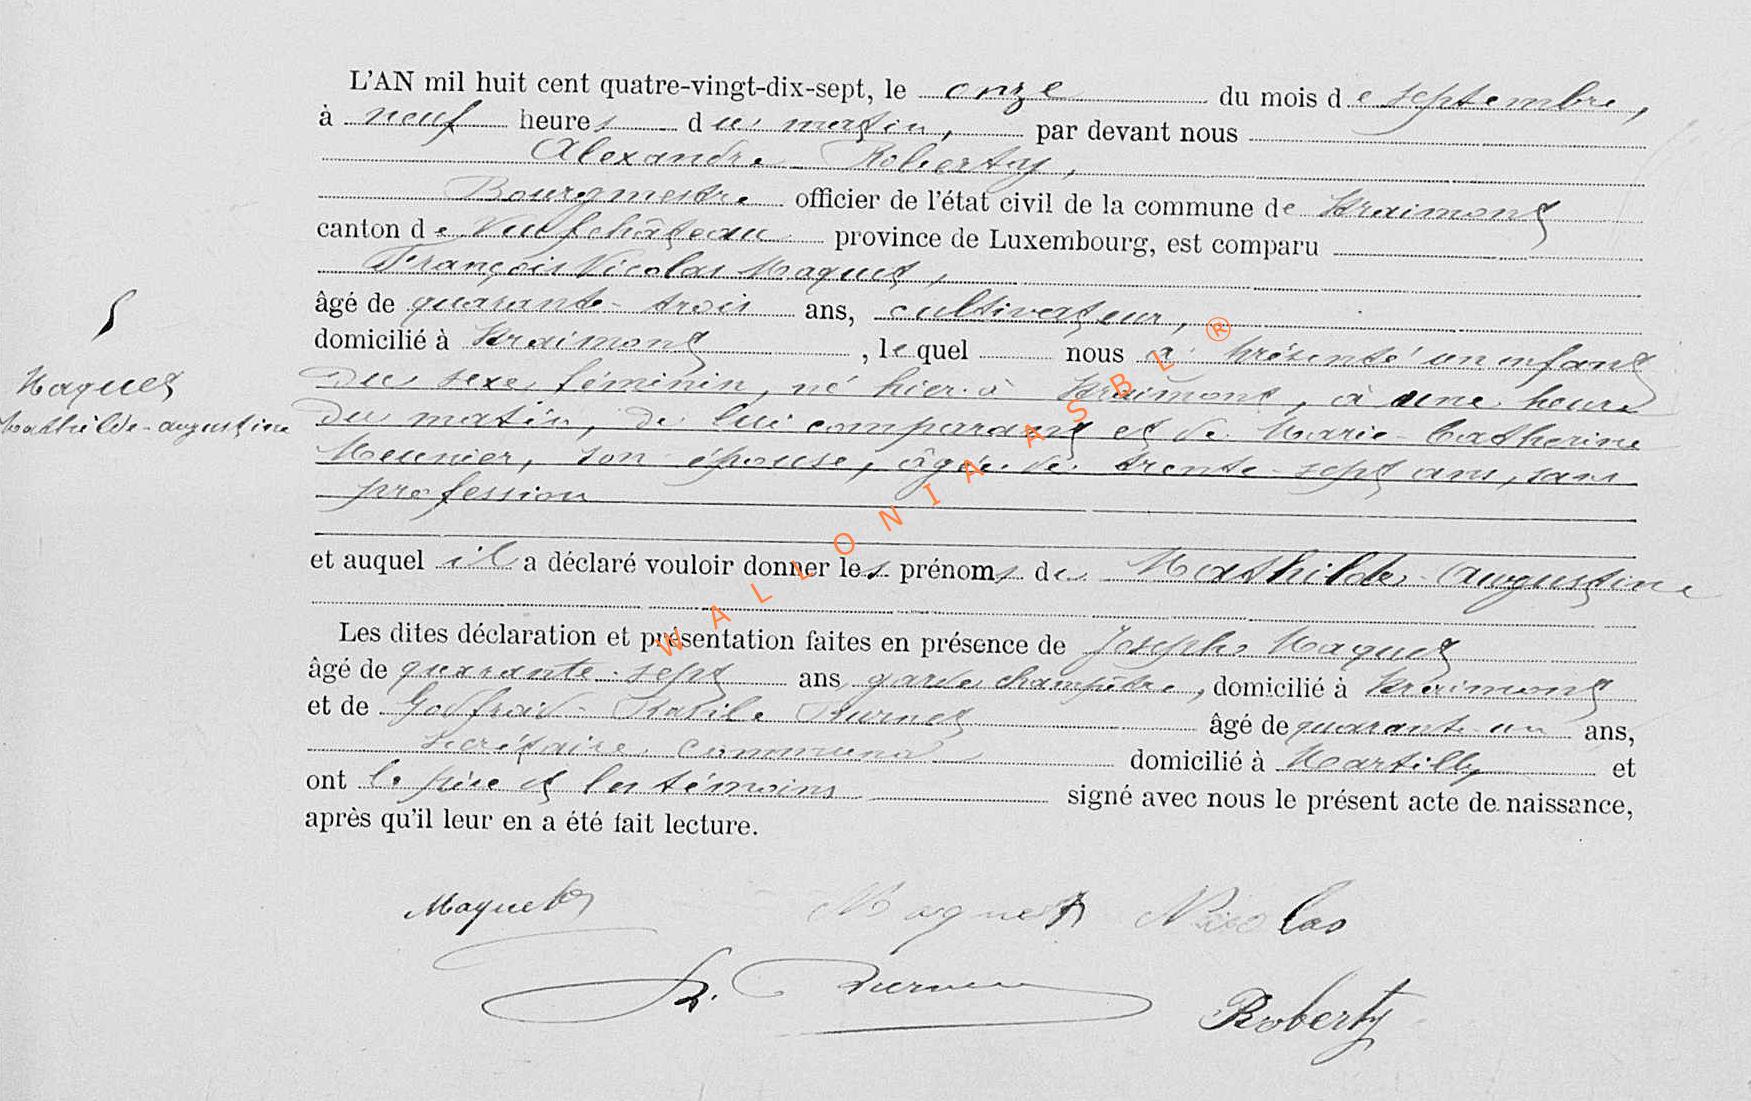 L'AN mil huit cent quatre-vingt-dix-sept, le onze du mois de septembre,
à neuf heures du matin, par devant nous
Alexandre Roberty,
Bourgmestre officier de l'état civil de la commune de Straimont
canton de Neufchâteau province de Luxembourg, est comparu
François Nicolas Maquet,
âgé de quarante-trois ans, cultivateur,
domicilié à Straimont, lequel nous a présenté un enfant
du sexe féminin, né hier à Straimont, à une heure
du matin, de lui comparant et de Marie-Catherine
Meunier, son épouse, âgée de trente-sept ans, sans
profession
et auquel il a déclaré vouloir donner les prénoms de Mathilde-Augustine
Les dites déclaration et présentation faites en présence de Joseph Maquet
âgé de quarante-sept ans garde champêtre, domicilié à Straimont
et de Godfroid Burnet âgé de quarante-un ans,
secrétaire communal domicilié à Martilly et
ont le père et les témoins signé avec nous le présent acte de naissance,
après qu'il leur en a été fait lecture.
5
Maquet
Mathilde-augustine
Maquet Maquet Nicolas
Roberty
WALLONIA ASBL ®